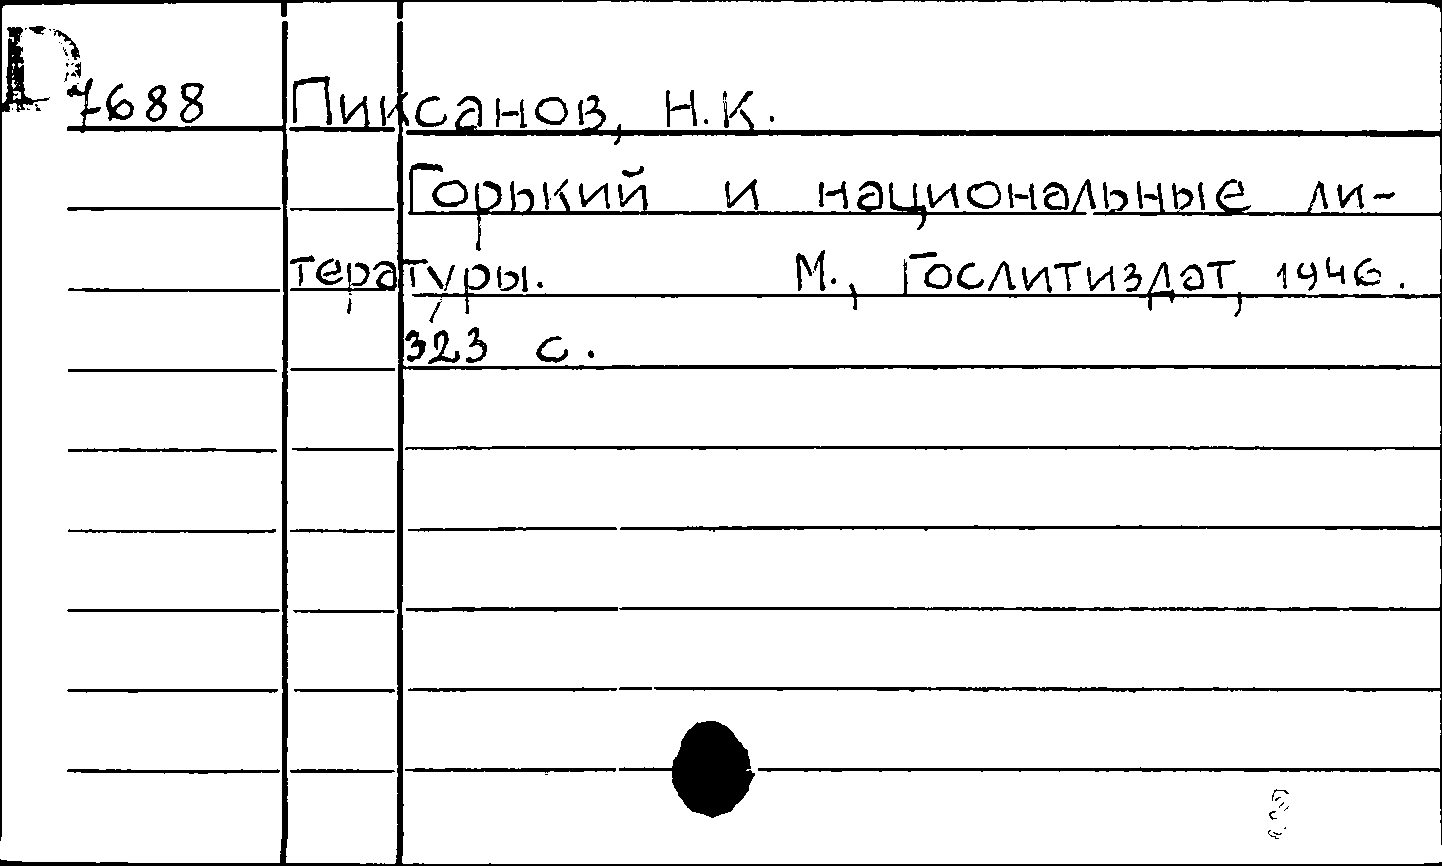 D 7688 Пиксанов, Н.К.
Горький и национальные ли-
тературы. М., Гослитиздат, 1946.
323 с.